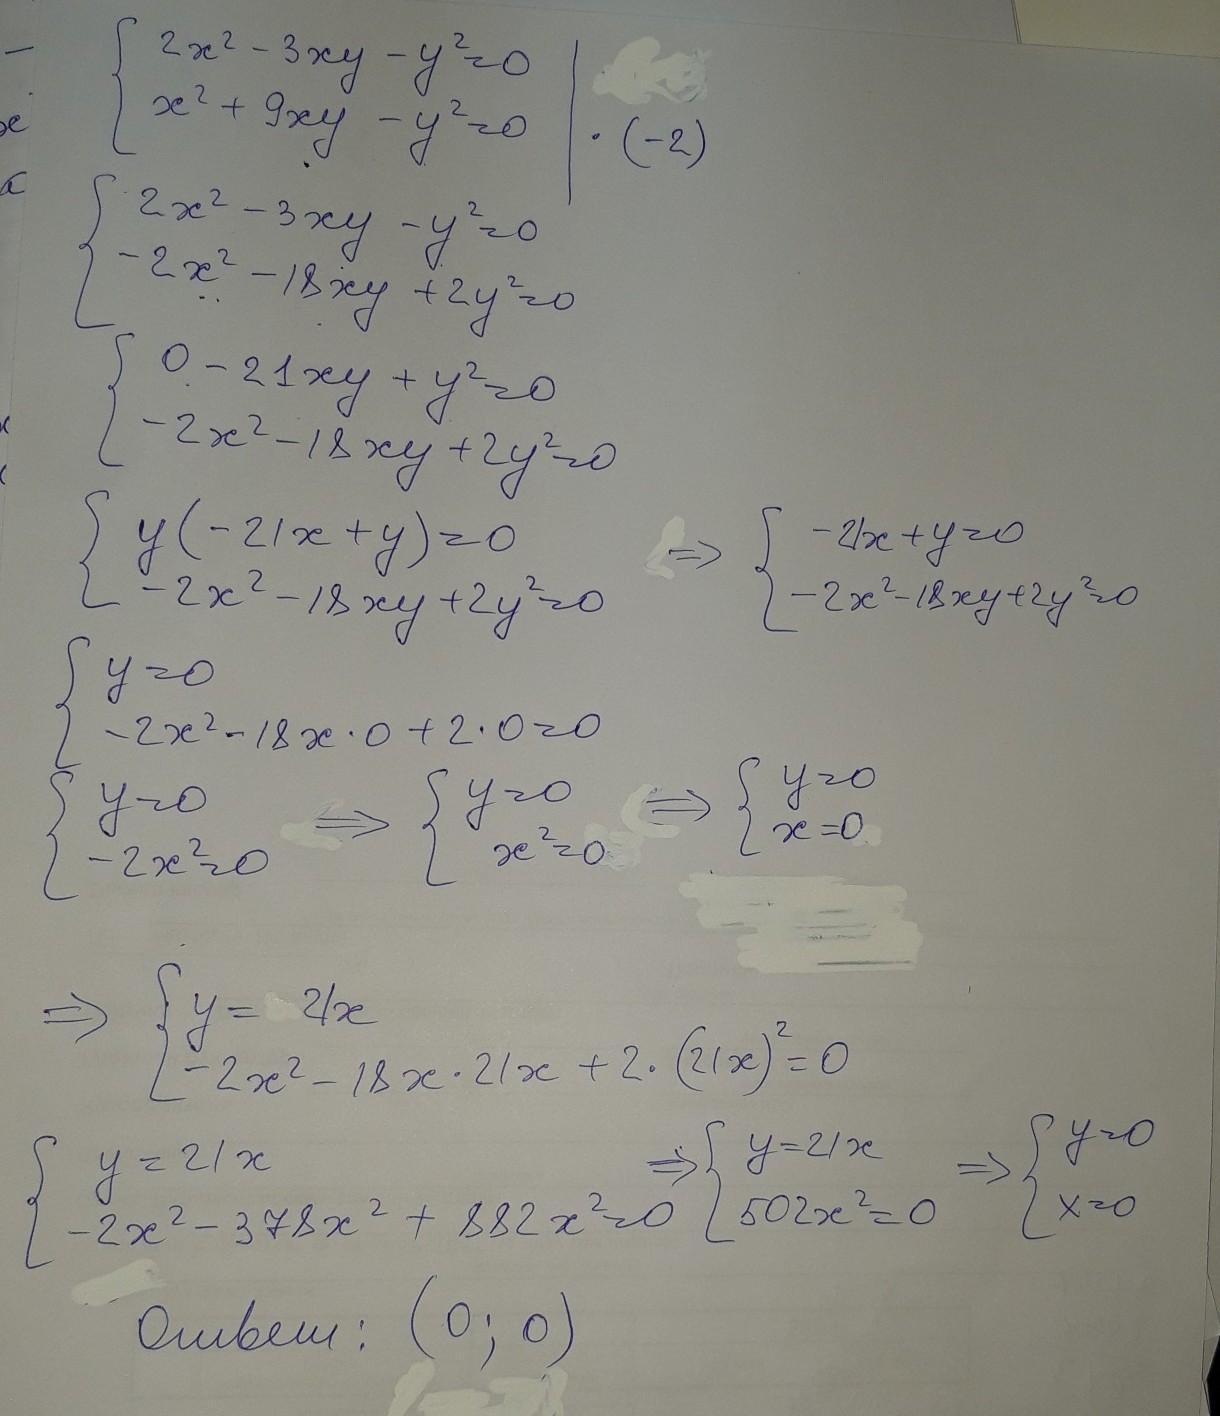 2x² - 3xy - y² = 0
x² + 9xy - y² = 0 | · (-2)
2x² - 3xy - y² = 0
-2x² - 18xy + 2y² = 0
0 - 21xy + y² = 0
-2x² - 18xy + 2y² = 0
y(-21x + y) = 0 ⇒ -21x + y = 0
-2x² - 18xy + 2y² = 0 -2x² - 18xy + 2y² = 0
y = 0
-2x² - 18x · 0 + 2 · 0 = 0
y = 0 ⇒ y = 0 ⇒ y = 0
-2x² = 0 x² = 0 x = 0
⇒ y = 21x
-2x² - 18x · 21x + 2 · (21x)² = 0
y = 21x ⇒ y = 21x ⇒ y = 0
-2x² - 378x² + 882x² = 0 502x² = 0 x = 0
Ответ: (0; 0)